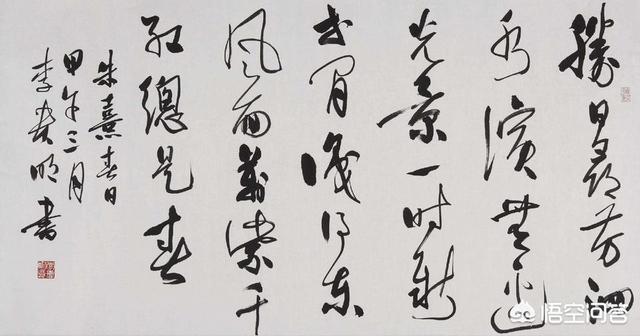 勝日尋芳泗
水濱無邊
光景一時新
等閒識得東
風面萬紫千
紅總是春
朱熹春日
甲午三月
李明書
悟空问答